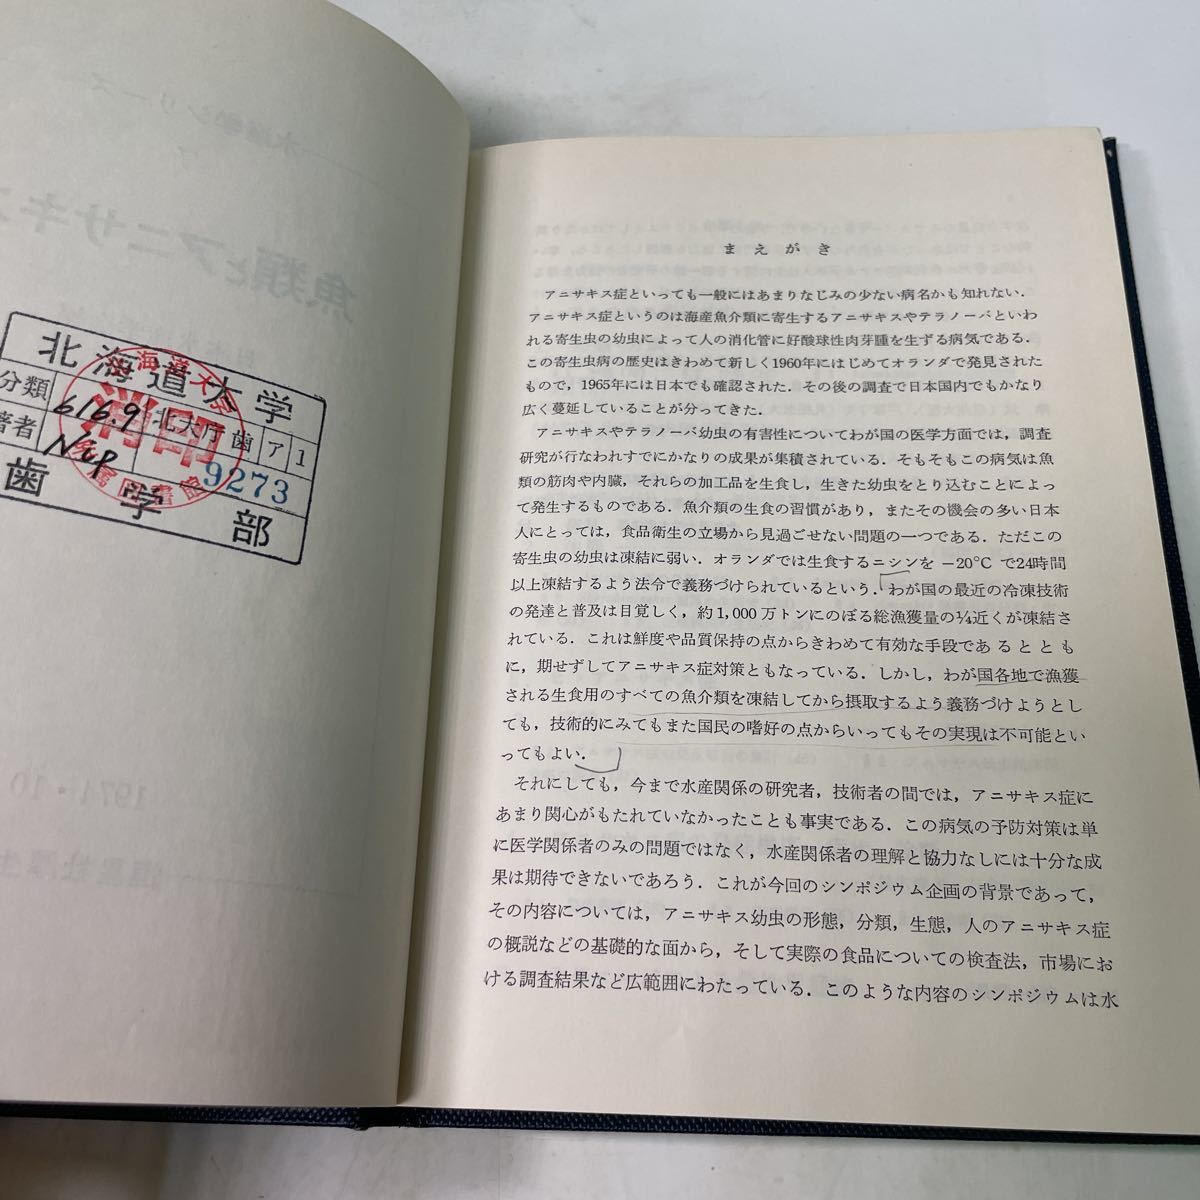 北海道大学
分類
616.9
北大庁歯
ア
1
著者
Nip
9273
歯学部
消印
まえがき
アニサキス症といっても一般にはあまりなじみの少ない病名かも知れない．
アニサキス症というのは海産魚介類に寄生するアニサキスやテラノーバといわ
れる寄生虫の幼虫によって人の消化管に好酸球性肉芽腫を生ずる病気である．
この寄生虫病の歴史はきわめて新しく1960年にはじめてオランダで発見された
もので，1965年には日本でも確認された．その後の調査で日本国内でもかなり
広く蔓延していることが分ってきた．
アニサキスやテラノーバ幼虫の有害性についてわが国の医学方面では，調査
研究が行なわれすでにかなりの成果が集積されている．そもそもこの病気は魚
類の筋肉や内臓，それらの加工品を生食し，生きた幼虫をとり込むことによっ
て発生するものである．魚介類の生食の習慣があり，またその機会の多い日本
人にとっては，食品衛生の立場から見過ごせない問題の一つである．ただこの
寄生虫の幼虫は凍結に弱い．オランダでは生食するニシンを −20℃ で24時間
以上凍結するよう法令で義務づけられているという．わが国の最近の冷凍技術
の発達と普及は目覚しく，約1,000万トンにのぼる総漁獲量の¼近くが凍結さ
れている．これは鮮度や品質保持の点からきわめて有効な手段であるととも
に，期せずしてアニサキス症対策ともなっている．しかし，わが国各地で漁獲
される生食用のすべての魚介類を凍結してから摂取するよう義務づけようとし
ても，技術的にみてもまた国民の嗜好の点からいってもその実現は不可能とい
ってもよい．
それにしても，今まで水産関係の研究者，技術者の間では，アニサキス症に
あまり関心がもたれていなかったことも事実である．この病気の予防対策は単
に医学関係者のみの問題ではなく，水産関係者の理解と協力なしには十分な成
果は期待できないであろう．これが今回のシンポジウム企画の背景であって，
その内容については，アニサキス幼虫の形態，分類，生態，人のアニサキス症
の概説などの基礎的な面から，そして実際の食品についての検査法，市場にお
ける調査結果など広範囲にわたっている．このような内容のシンポジウムは水